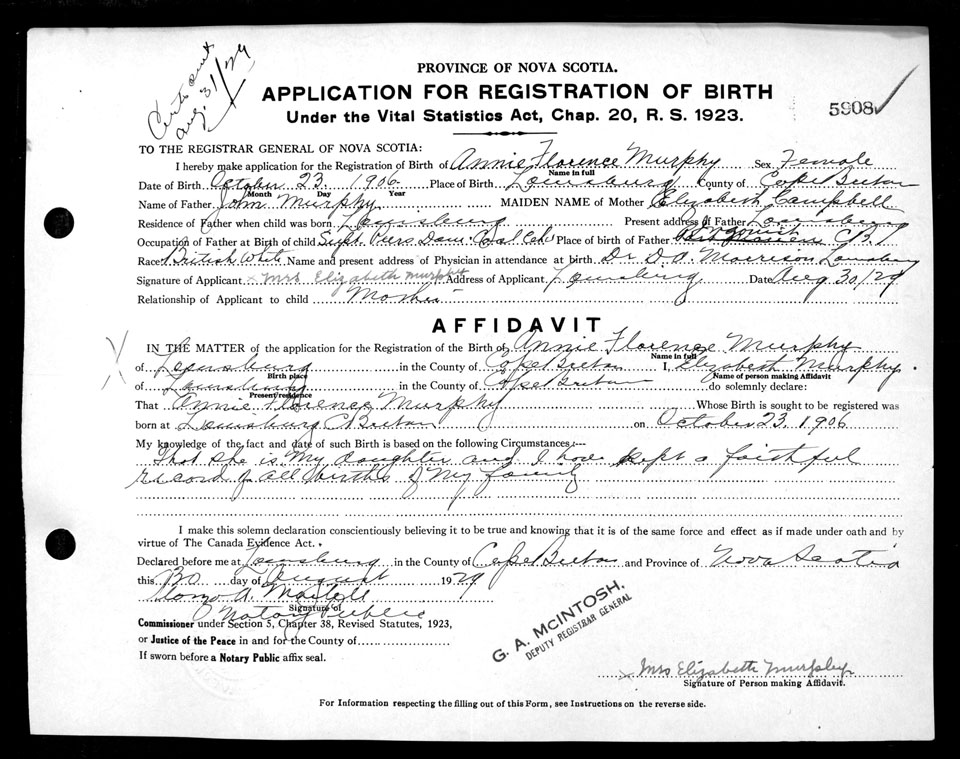 Cert sent
Aug. 31/29
PROVINCE OF NOVA SCOTIA.
APPLICATION FOR REGISTRATION OF BIRTH
Under the Vital Statistics Act, Chap. 20, R. S. 1923.
5908
TO THE REGISTRAR GENERAL OF NOVA SCOTIA:
I hereby make application for the Registration of Birth of Annie Florence Murphy Sex Female
Name in full
Date of Birth October 23 1906 Place of Birth Louisburg County of Cape Breton
Month Day Year
Name of Father John Murphy MAIDEN NAME of Mother Elizabeth Campbell
Residence of Father when child was born Louisburg Present address of Father Louisburg
Occupation of Father at Birth of child Supt Piers Dom. Coal Co Place of birth of Father C.B.
Race British White Name and present address of Physician in attendance at birth Dr D.A. Morrison Louisburg
Signature of Applicant x Mrs Elizabeth Murphy Address of Applicant Louisburg Date Aug 30/29
Relationship of Applicant to child Mother
AFFIDAVIT
IN THE MATTER of the application for the Registration of the Birth of Annie Florence Murphy
Name in full
of Louisburg in the County of Cape Breton I, Elizabeth Murphy
Birth place Name of person making Affidavit
of Louisburg in the County of Cape Breton do solemnly declare:
Present residence
That Annie Florence Murphy Whose Birth is sought to be registered was
born at Louisburg C Breton on October 23, 1906
My knowledge of the fact and date of such Birth is based on the following Circumstances:—
That she is my daughter and I have kept a faithful
record of all births of my family
I make this solemn declaration conscientiously believing it to be true and knowing that it is of the same force and effect as if made under oath and by
virtue of The Canada Evidence Act.
Declared before me at Louisburg in the County of Cape Breton and Province of Nova Scotia
this 30 day of August 1929
A. Martell
Signature of
Notary Public
Commissioner under Section 5, Chapter 38, Revised Statutes, 1923,
or Justice of the Peace in and for the County of
If sworn before a Notary Public affix seal.
G. A. McINTOSH,
DEPUTY REGISTRAR GENERAL
x Mrs Elizabeth Murphy
Signature of Person making Affidavit.
For Information respecting the filling out of this Form, see Instructions on the reverse side.